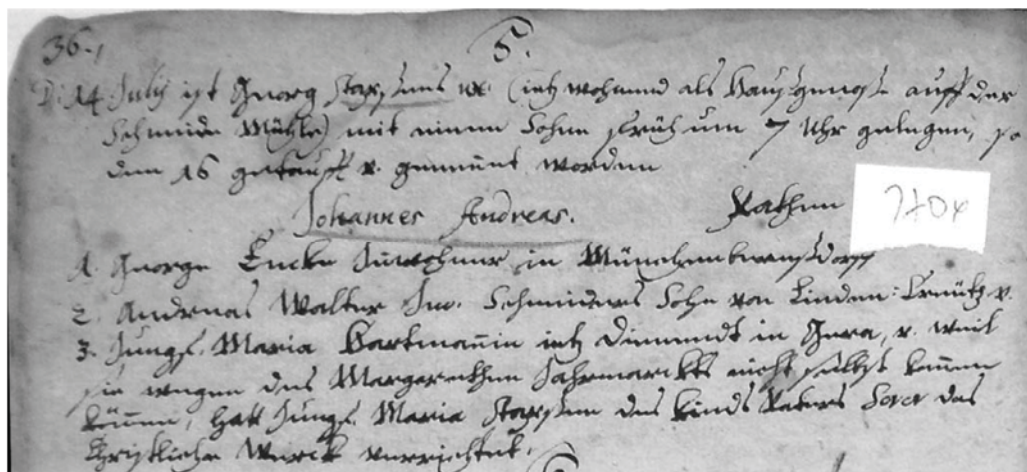 36.
5.
D. 14 Julij ist Georg ux. (ietz wohnend als Haußgenoße auff der
Schneide Mühle) mit einem Sohne früh um 7 Uhr gelegen, so
den 16 getaufft v. genennt worden
Johannes Andreas. Pathen
1704
1. George Encke Inwohner in Münchenbernßdorff
2. Andreas Walter Schneiders Sohn von Linden: Creütz v.
3. Jungf. Maria Hartmanin ietz dienendt in Gera, v. weil
sie wegen des Margarethen Jahrmarckts nicht selbst kommen
können, hat Jungf. Maria des Kinds Vaters das
Christliche Werck verrichtet.